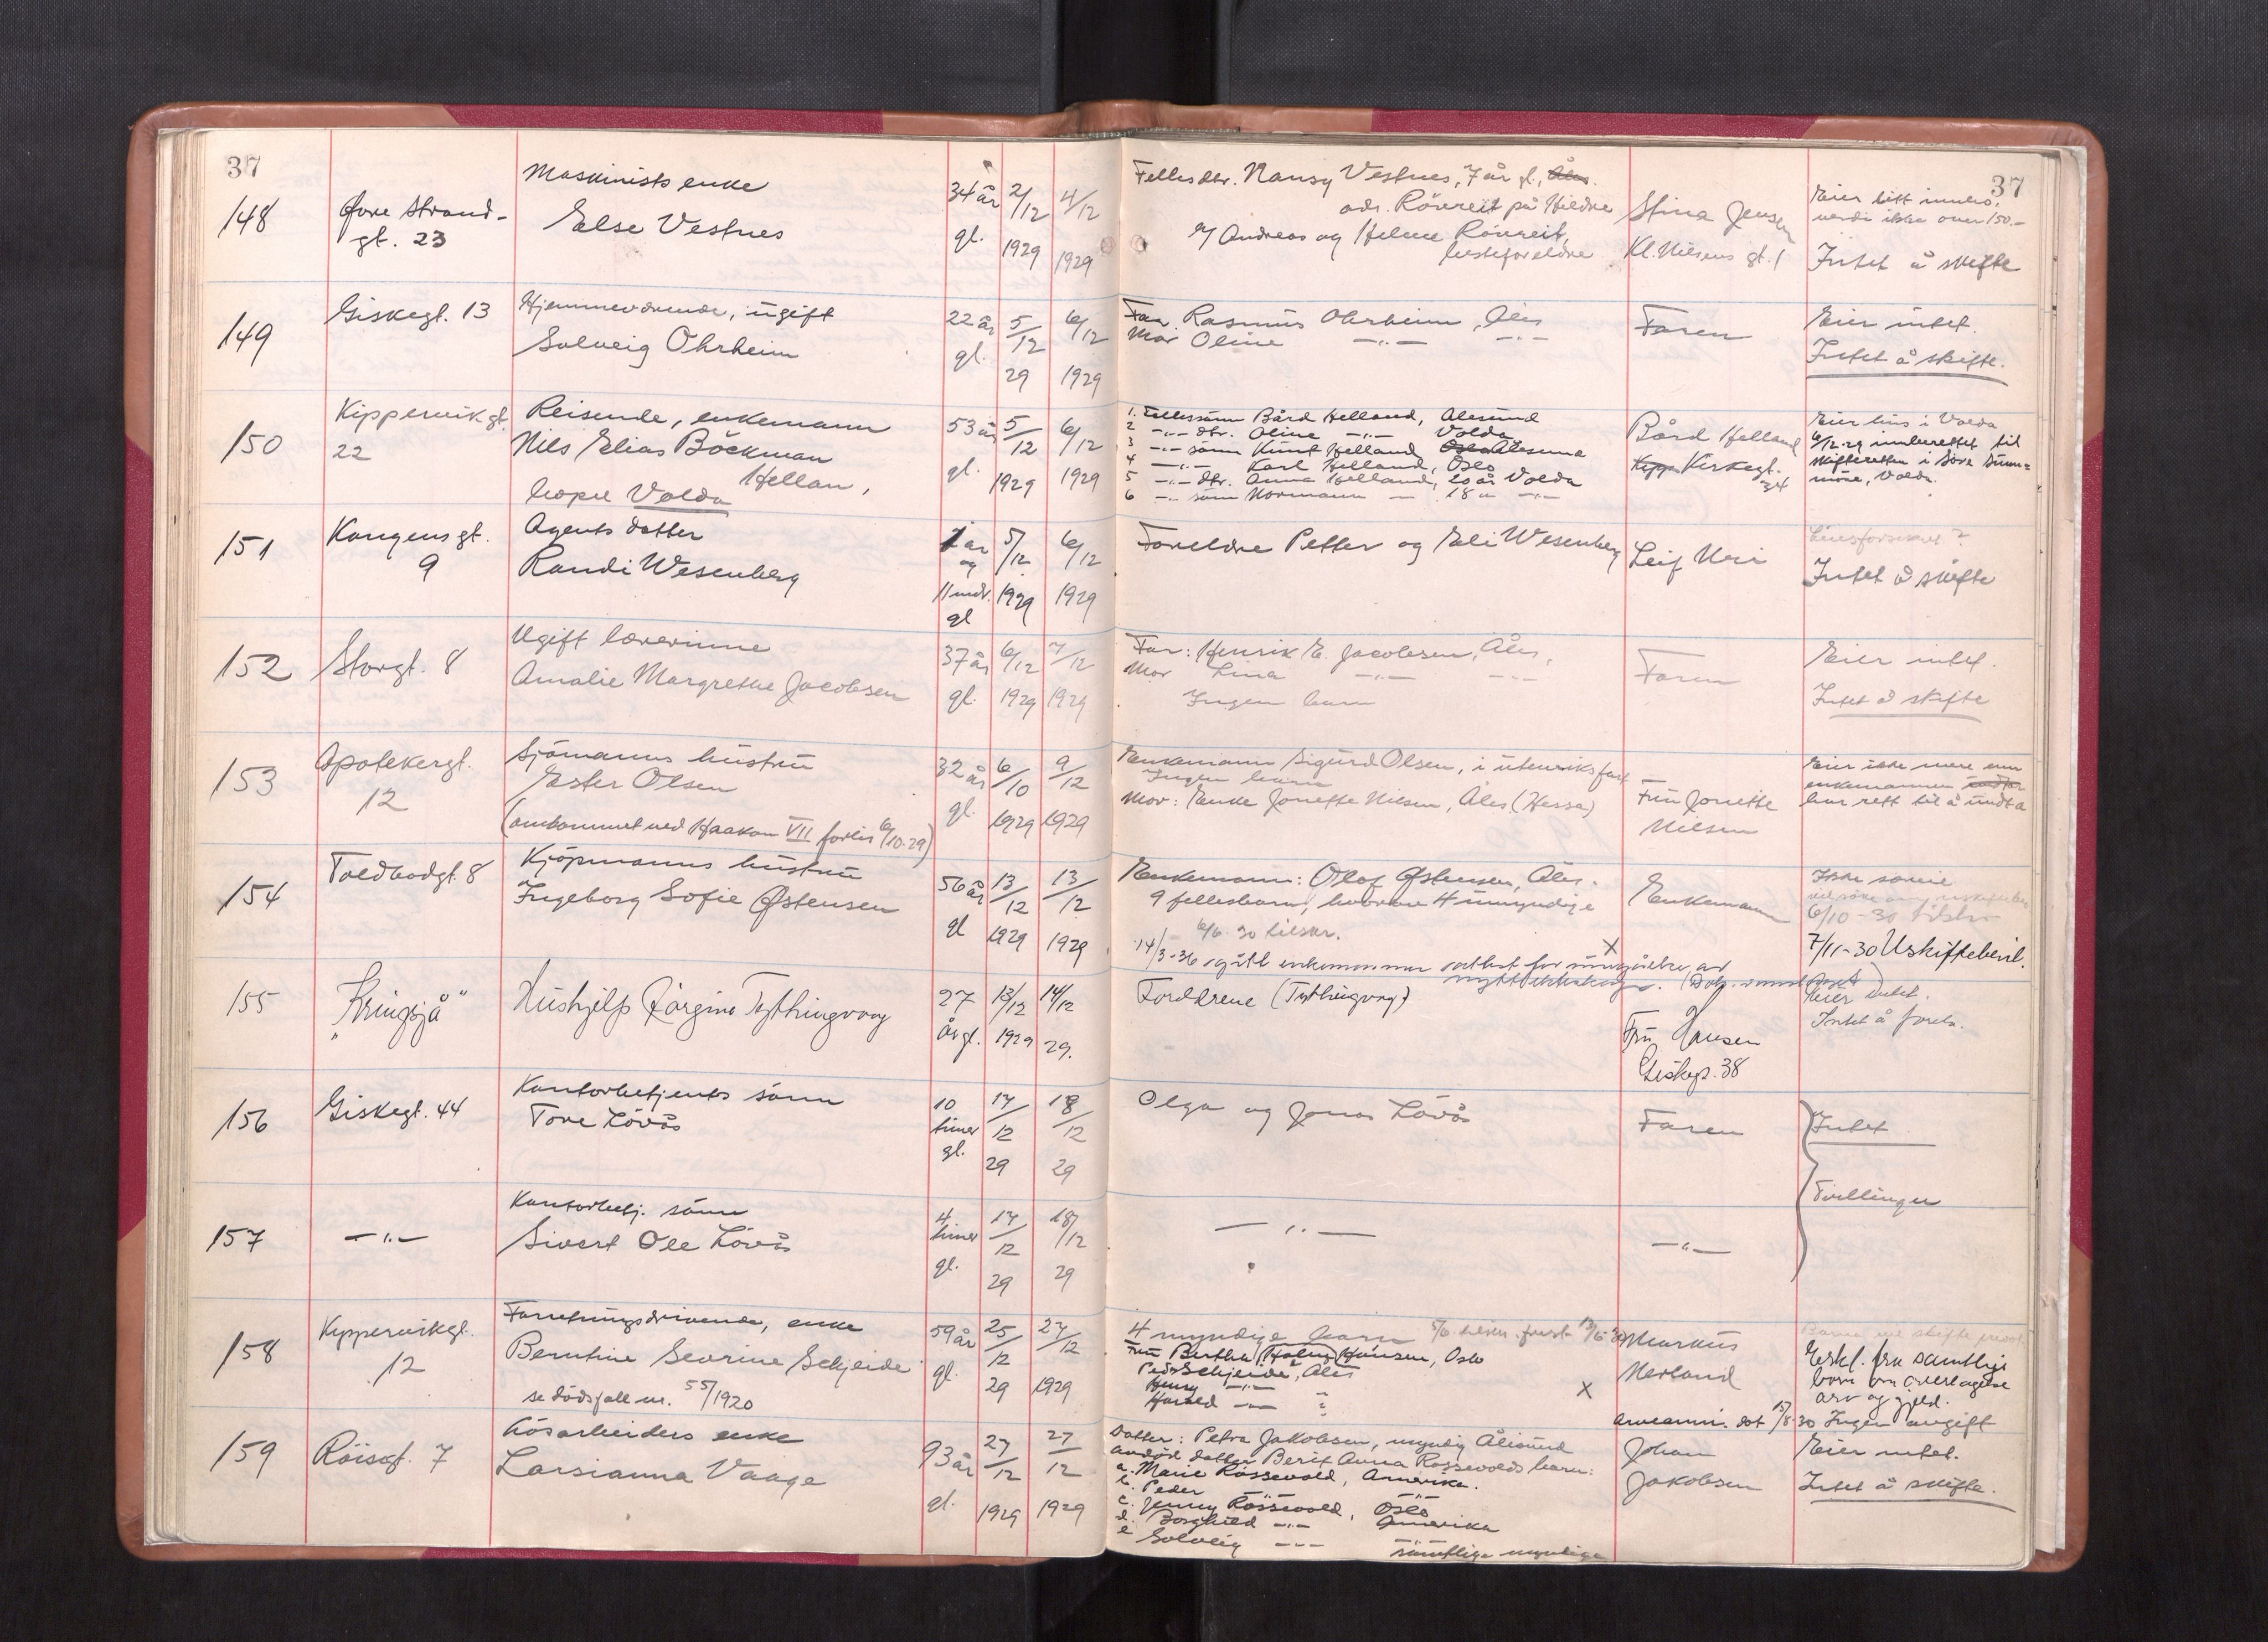 37
37
148
Øvre Strand-
gt. 23
Maskinists enke
Else Vestnes
34 år
gl.
2/12
1929
4/12
1929
Fellesdtr. Nansy Vestnes, 7 år gl., Åles.
adr. Rövreit på Hildre
c/ Andreas og Helene Rövreit,
besteforeldre
Stina Jensen
Kl. Nilsens gt. 1
Eier litt innbo,
verdi ikke over 150.-
Intet å skifte
149
Giskegt. 13
Hjemmeværende, ugift
Solveig Ohrheim
22 år
gl.
5/12
29
6/12
1929
Far. Rasmus Ohrheim, Åles
Mor Oline -"- -"-
Faren
Eier intet.
Intet å skifte.
150
Kippervikgt.
22
Reisende, enkemann
Nils Elias Böckman
Hellan,
bopel Volda
53 år
gl.
5/12
1929
6/12
1929
1. Fellessönn Bård Helland, Ålesund
2 -"- dtr. Oline -"- Volda
3 -"- sönn Knut Helland Oslo Ålesund
4 -"- Karl Helland, Oslo
5 -"- dtr. Anna Helland, 20 år Volda
6 -"- sönn Normann - 18 " -"-
Bård Helland
Kipp Kirkegt.
34
Eier hus i Volda
6/12.29 innberettet til
skifteretten i Söre Sunn=
möre, Volda.
151
Kongensgt.
9
Agents datter
Randi Wesenberg
1 år
og
11 mdr.
gl
5/12
1929
6/12
1929
Foreldre Petter og Eli Wesenberg
Leif Uri
Livsforsikret?
Intet å skifte
152
Storgt. 8
Ugift lærerinne
Amalie Margrethe Jacobsen
37 år
gl.
6/12
1929
7/12
1929
Far: Henrik E. Jacobsen, Åles,
Mor Lina -"- -"-
Ingen barn
Faren
Eier intet.
Intet å skifte
153
Apotekergt.
12
Sjömanns hustru
Ester Olsen
(omkommet ved Haakon VII forlis 6/10.29)
32 år
gl.
6/10
1929
9/12
1929
Enkemann Sigurd Olsen, i utenriksfart
Ingen barn
Mor: Enke Jonette Nilsen, Åles. (Hessa)
Fru Jonette
Nilsen
Eier ikke mere enn
enkemannen
har rett til å undta
154
Toldbodgt. 8
Kjöpmanns hustru
Ingeborg Sofie Østensen
56 år
gl
13/12
1929
13/12
1929
Enkemann: Olaf Østensen, Åles.
9 fellesbarn, hvorav 4 umyndige
6/6 30 tilskr.
X
14/3-36 spurt enkemannen
Enkemann
6/10-30 tilskr
7/11-30 Uskiftebevil.
155
"Kringsjå"
Hushjelp Jörgine Tythingvåg
27
år gl.
13/12
1929
14/12
29.
Foreldrene (Tythingvåg)
Fru Hansen
Giskegt. 38
Eier intet.
Intet å foreta.
156
Giskegt. 44
Kontorbetjents sönn
Tore Lövås
10
timer
gl.
17/12
29
18/12
29
Olga og Jonas Lövås
Faren
Intet
157
-"-
Kontorbetj. sönn
Sivert Ole Lövås
4
timer
gl.
17/12
29
18/12
29
-"-
-"-
Tvillinger
158
Kippervikgt.
12
Forretningsdrivende, enke
Berntine Severine Schjeide
se dödsfall nr. 55/1920
59 år
gl.
25/12
29
27/12
1929
4 myndige barn
Fru Berthe (Holm) Hansen, Oslo
Peder Schjeide, Åles
Henry -"-
Harald -"- "
X
Markus
Nerland
Erkl. fra samtlige
barn om overtagelse
arv og gjeld.
Arveanm. dat 15/8-30 Ingen avgift
159
Röisgt. 7
Lösarbeiders enke
Larsianna Vaage
93 år
gl.
27/12
1929
27/12
1929
Datter: Petra Jakobsen, myndig Ålesund
avdöd datter Berit Anna Rossevolds barn:
a. Marie Rössevold, Amerika.
b. Peder -"-
c. Jenny Rössevold, Oslo
d. Borghild -"- Amerika
e Solveig -"-
samtlige myndige
Johan
Jakobsen
Eier intet.
Intet å skifte.